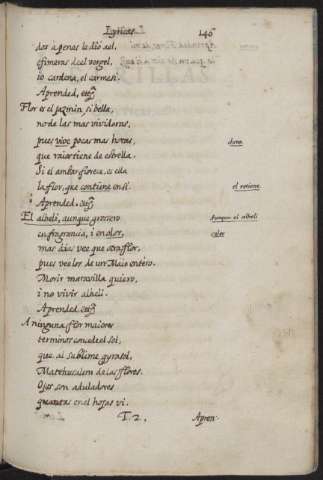 Lyricas.
140
dos apenas le dio sol,
efimeras del vergel,
io cardena, el carmesi.
Aprended, etc.
Flor es el jazmin, si bella,
no de las mas vividoras,
pues vive pocas mas horas,
dura
que raios tiene de estrella.
Si el ambar florece, es ella
la flor, que contiene en si.
el retiene
Aprended, etc.
El alheli, aunque grosero
Aunque el alheli
en fragrancia, i en olor,
color
mas dias vee que otra flor,
pues vee los de un Maio entero.
Morir maravilla quiero,
i no vivir alheli.
Aprended. etc.
A ninguna flor maiores
terminos concede el sol,
que al sublime gyrasol,
Matthusalem de las flores.
Ojos son aduladores
quantas en el hojas vi.
T. 2.
Apren-